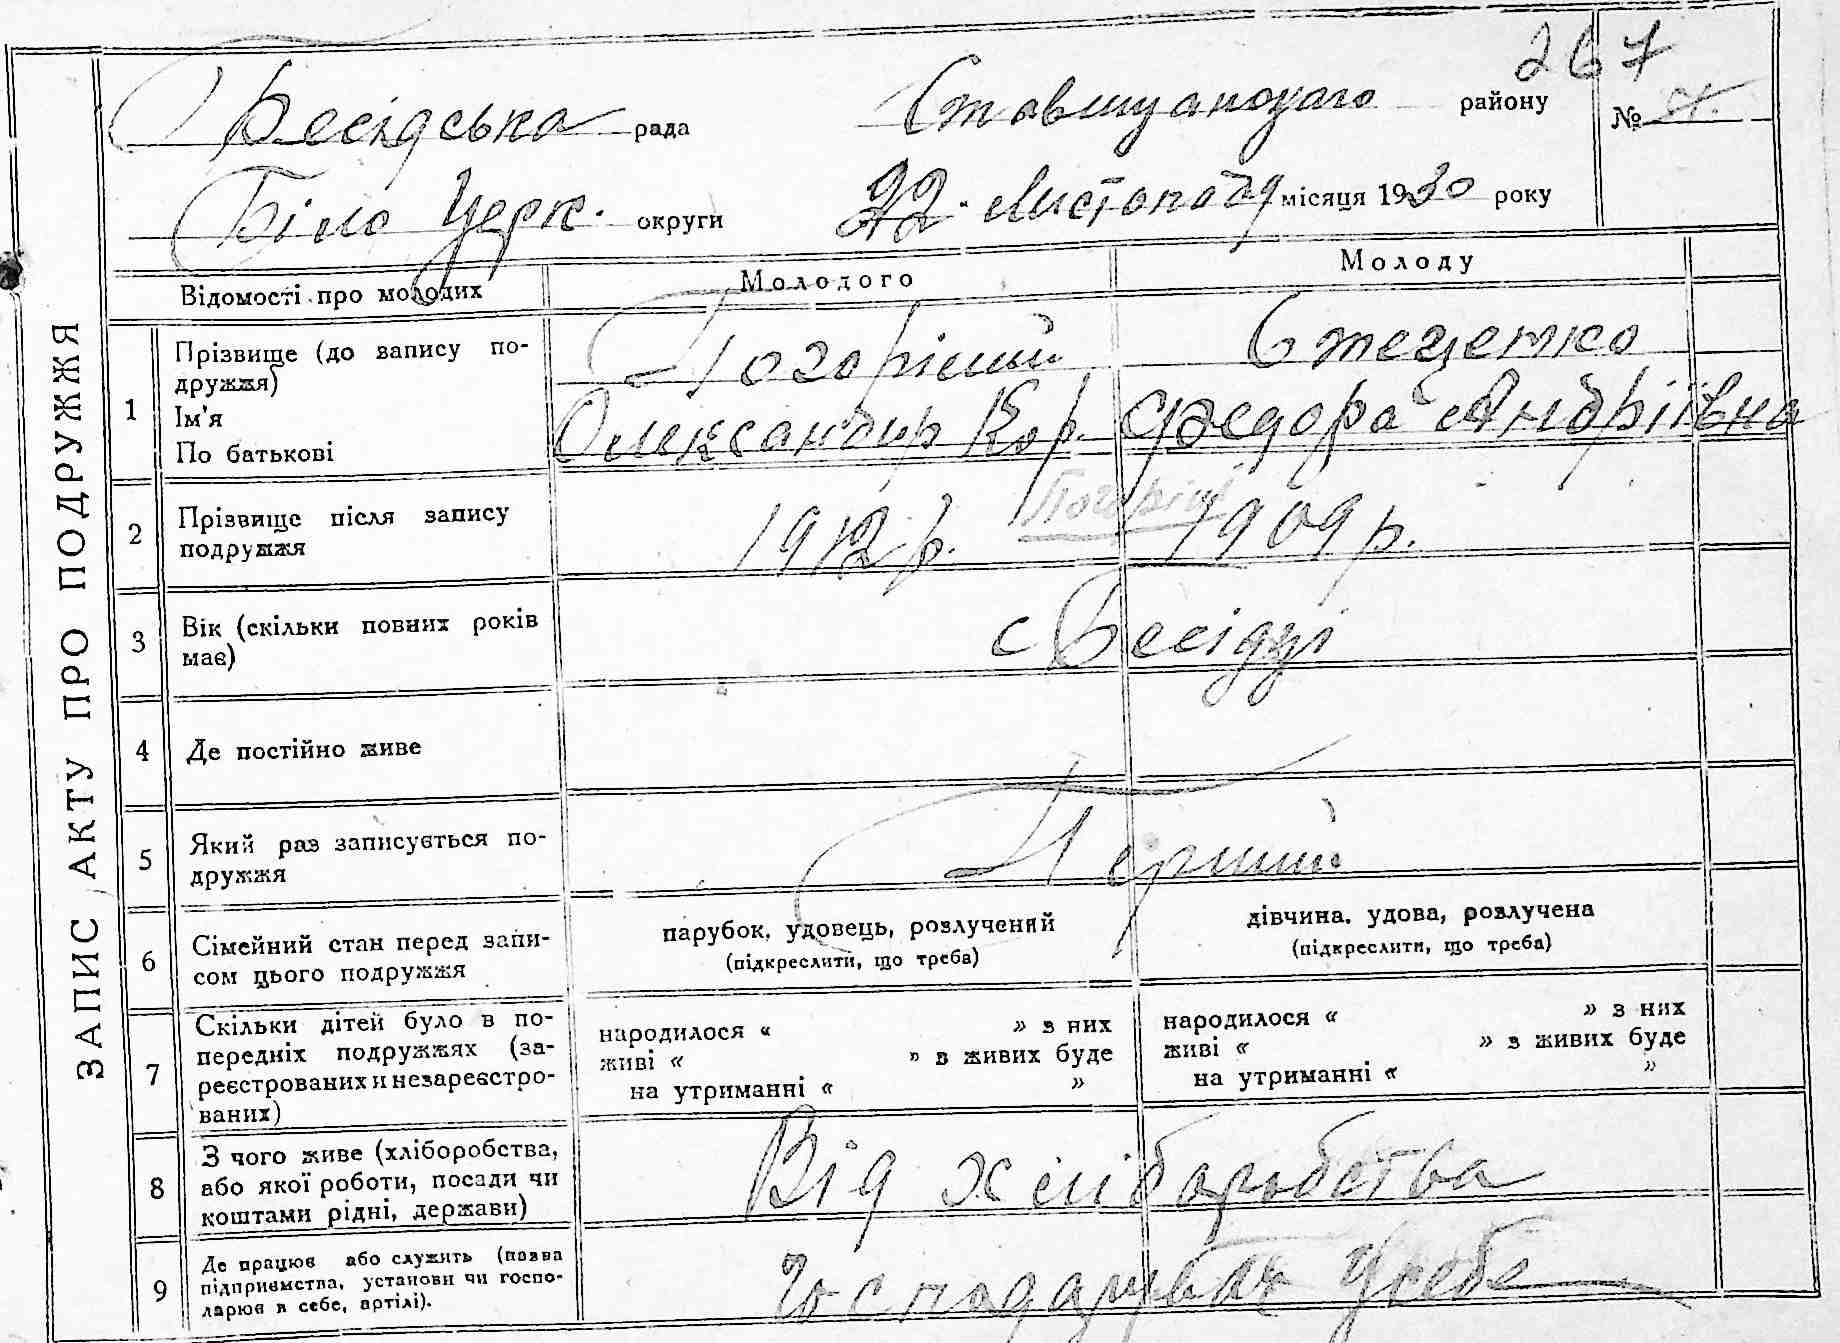 267
Бесідська рада Ставищанского району №
Біло Церк. округи 22 Листопада місяця 1930 року
ЗАПИС АКТУ ПРО ПОДРУЖЖЯ
Відомості про молодих Молодого Молоду
1 Прізвище (до запису по-
дружжя)
Ім'я
По батькові
Погорілий Стеценко
Олександир Кор. Федора Андріївна
2 Прізвище після запису
подружжя
1912 р. Погоріл 1909 р.
3 Вік (скільки повних років
має)
с Бесідці
4 Де постійно живе
5 Який раз записується по-
дружжя
Перший
6 Сімейний стан перед запи-
сом цього подружжя
парубок, удовець, розлучений
(підкреслити, що треба)
дівчина, удова, розлучена
(підкреслити, що треба)
7 Скільки дітей було в по-
передніх подружжях (за-
реєстрованих и незареєстро-
ваних)
народилося « » з них
живі « » з живих буде
на утриманні « »
народилося « » з них
живі « » з живих буде
на утриманні « »
8 З чого живе (хліборобства,
або якої роботи, посади чи
коштами рідні, держави)
Від хліборобства
9 Де працює або служить (назва
підприємства, установи чи госпо-
дарює в себе, артілі).
Усебе